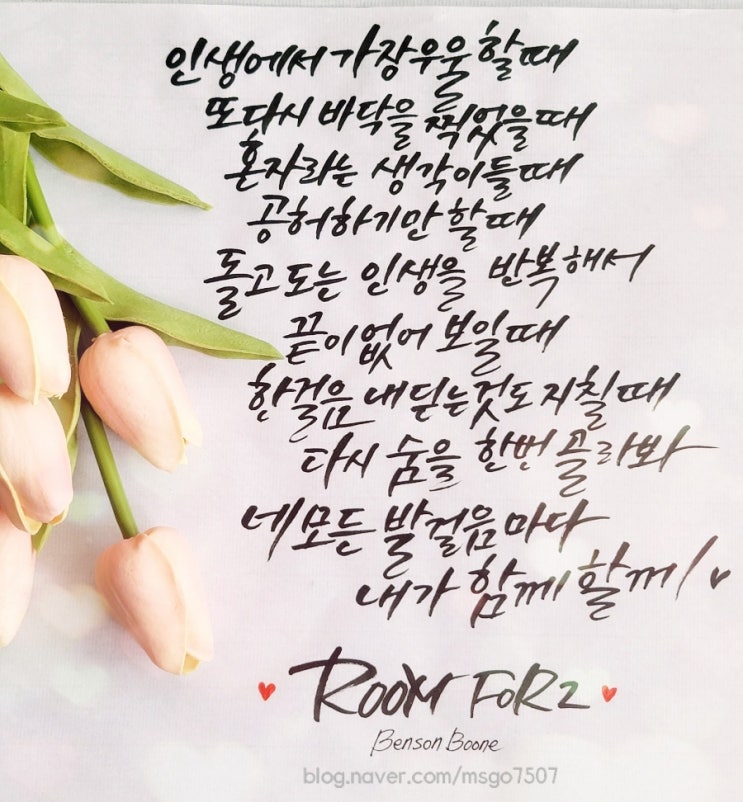 인생에서 가장 우울할때
또다시 바닥을 찍었을때
혼자라는 생각이들때
공허하기만 할때
돌고도는 인생을 반복해서
끝이없어 보일때
한걸음 내딛는것도 지칠때
다시 숨을 한번 골라봐
네모든 발걸음마다
내가 함께할께!
ROOM FOR 2
Benson Boone
blog.naver.com/msgo7507